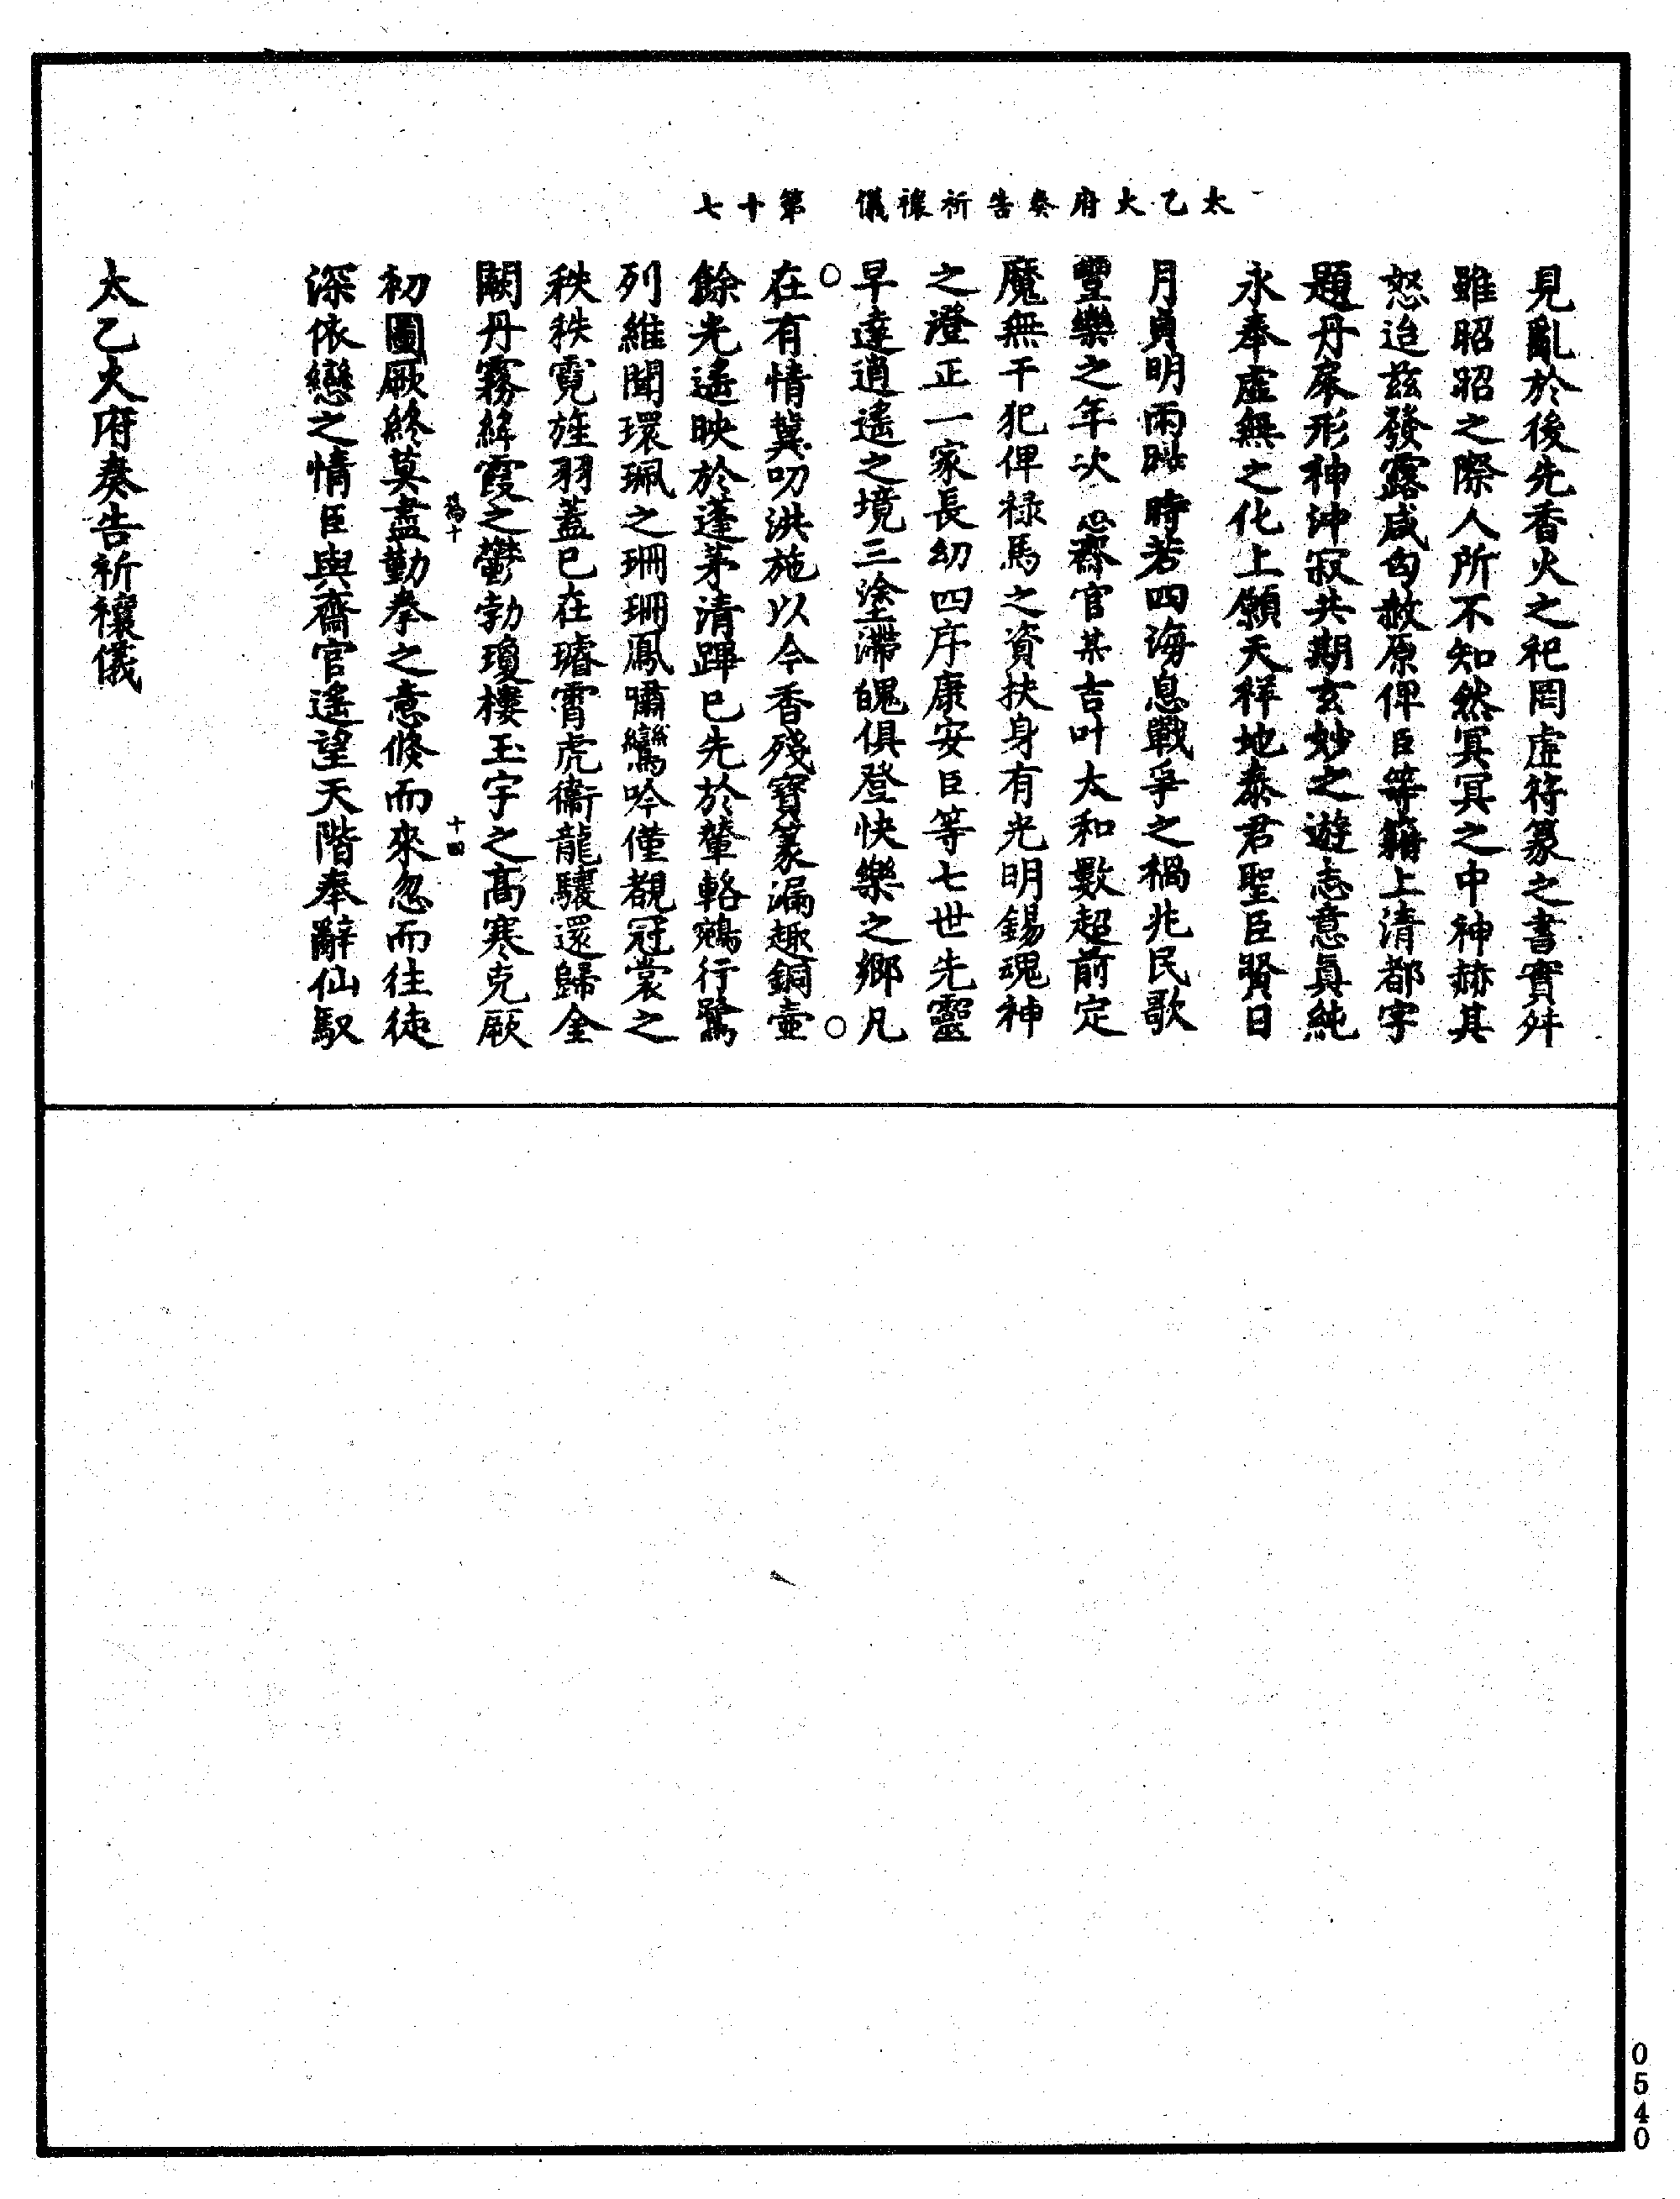 太乙火府奏告祈禳儀　第十七
見亂於後先香火之祀罔虛符篆之書實舛
雖昭昭之際人所不知然冥冥之中神赫其
怒迨茲發露咸匄赦原俾臣等籍上清都字
題丹扆形神沖寂共期玄妙之遊志意眞純
永奉虛無之化上願天祥地泰君聖臣賢日
月貞明雨暘時若四海息戰爭之禍兆民歌
豐樂之年次冀齋官某吉叶太和數超前定
魔無干犯俾祿馬之資扶身有光明錫魂神
之澄正一家長幼四序康安臣等七世先靈
早達逍遙之境三塗滯魄俱登快樂之鄉凡
○在有情冀叨洪施以今香殘寶篆漏趣銅壺○
餘光遙映於蓬茅清蹕已先於輦輅鵷行鷺
列維聞環珮之珊珊鳳嘯鸞吟僅覩冠裳之
秩秩霓旌羽蓋已在璿霄虎衛龍驤還歸金
闕丹霧絳霞之鬱勃瓊樓玉宇之高寒克厥
十四
初圖厥終莫盡勤拳之意倏而來忽而往徒
深依戀之情臣與齋官遙望天階奉辭仙馭
太乙火府奏告祈禳儀
0540